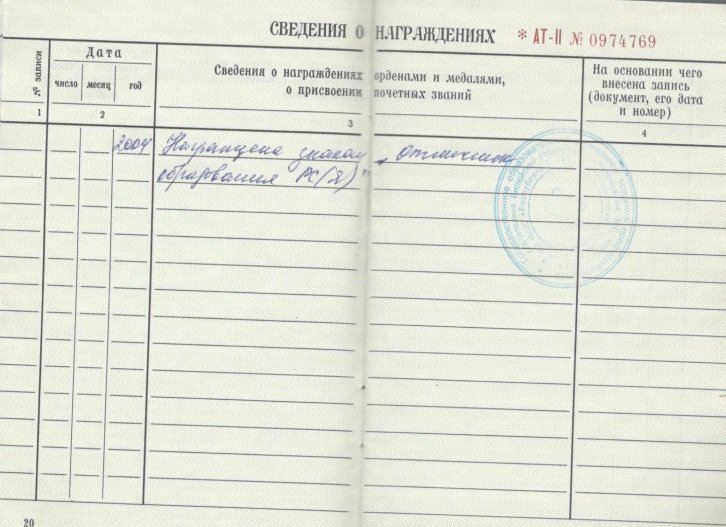 СВЕДЕНИЯ О НАГРАЖДЕНИЯХ * АТ-II № 0974769
№ записи
Дата
число месяц год
Сведения о награждениях орденами и медалями,
о присвоении почетных званий
На основании чего
внесена запись
(документ, его дата
и номер)
1 2 3 4
2004 Награждена знаком „Отличник
образования РС(Я)"
20